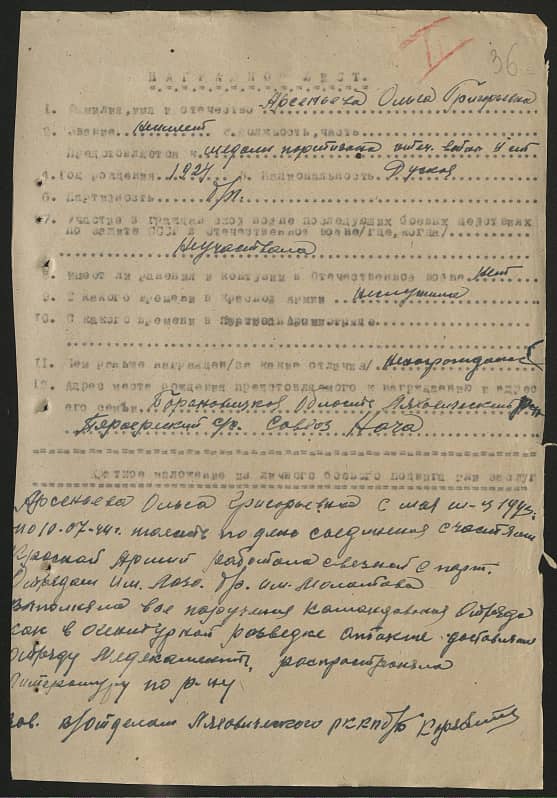 36
НАГРАДНОЙ ЛИСТ.
1. Фамилия, имя и Отечество Арсеньева Ольга Григорьевна
2. Звание должность, часть
Представляется к медали партизана отеч. войны II ст
4. Год рождения 1924 5. Национальность Русская
6. Партийность б/п.
7. Участие в гражданской войне последующих боевых действиях
по защите СССР в Отечественной войне/где, когда/
Неучаствовала
8. Имеет ли ранения и контузии в Отечественной войне нет
9. С какого времени в Красной Армии неслужила
10. С какого времени в
11. Чем раньше награжден/за какие отличия/ ненаграждалась
12. Адрес места рождения представляемого к награждению и адрес
его семьи Барановичская Область Ляховичский р-н
с/с. Совхоз Нача
Краткое изложение личного боевого подвига или заслуг
Арсеньева Ольга Григорьевна с мая м-ца 1943г.
по 10-07-44г. по день соединения с частями
Красной Армии работала связной с парт.
Отрядам им. Лазо. бр. им. Молотова
выполняла все поручения командования Отряда
как в разведке доставляла
Отряду Медекаменты, распространяла
Литературу по р-ну
Зав. в/отделам Ляховичского РК КП/б/Б